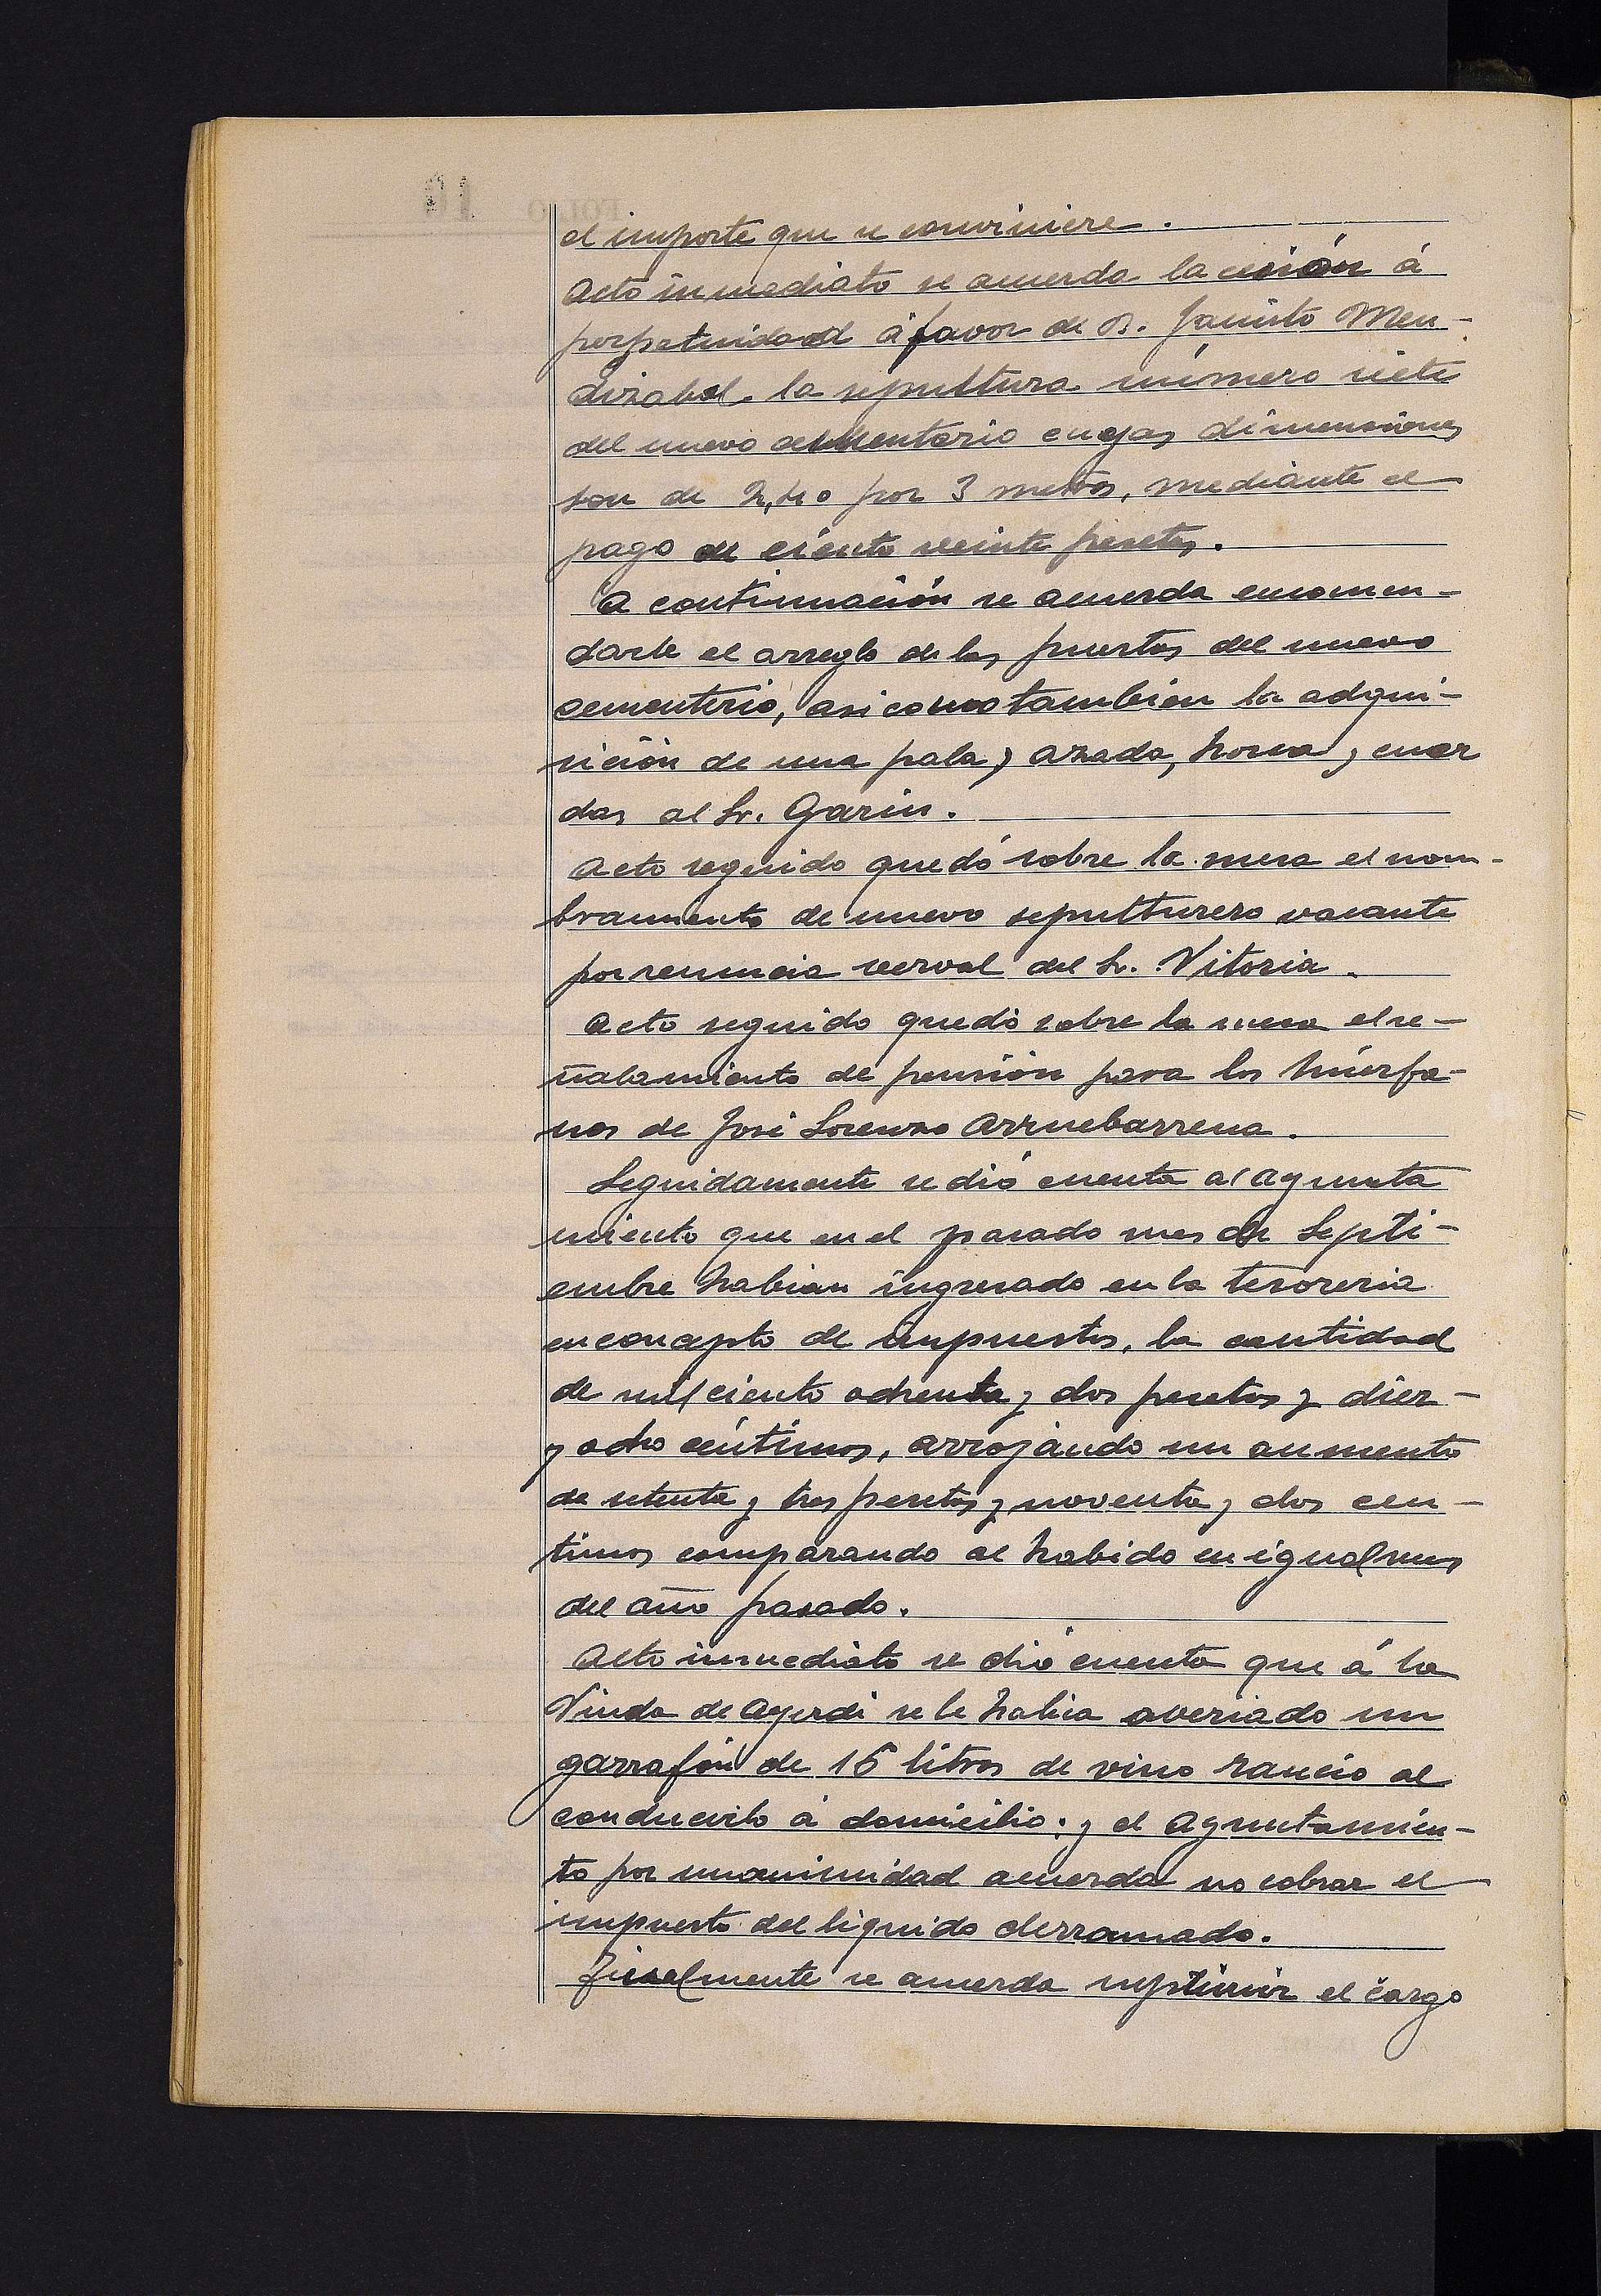 el importe que se conviniere.
Acto inmediato se acuerda la cesión á
perpetuidad á favor de D. Jacinto Men-
dizabal la sepultura número siete
del nuevo cementerio cuyas dimensiones
son de 2,40 por 3 metros, mediante el
pago de ciento veinte pesetas.
A continuación se acuerda encomen-
darle el arreglo de las puertas del nuevo
cementerio, asi como tambien la adqui-
sición de una pala, azada, horca y cuer
das al Sr. Garin.
Acto seguido quedó sobre la mesa el nom-
bramiento de nuevo sepulturero vacante
por renuncia verval del Sr. Vitoria.
Acto seguido quedó sobre la mesa el se-
ñalamiento de pensión para los huérfa-
nos de José Lorenzo Arruebarrena.
Seguidamente se dió cuenta al Ayunta
miento que en el pasado mes de Septi-
embre habian ingresado en la tesoreria
en concepto de impuestos, la cantidad
de mil ciento ochenta y dos pesetas y diez-
y ocho céntimos, arrojando un aumento
de setenta y tres pesetas y noventa y dos cen-
timos comparando al habido en igual mes
del año pasado.
Acto inmediato se dió cuenta que á la
Viuda de Ayerdi se le habia averiado un
garrafón de 16 litros de vino rancio al
conducirlo á domicilio; y el Ayuntamien-
to por unanimidad acuerda no cobrar el
impuesto del liquido derramado.
Finalmente se acuerda suprimir el cargo
FOLIO 16